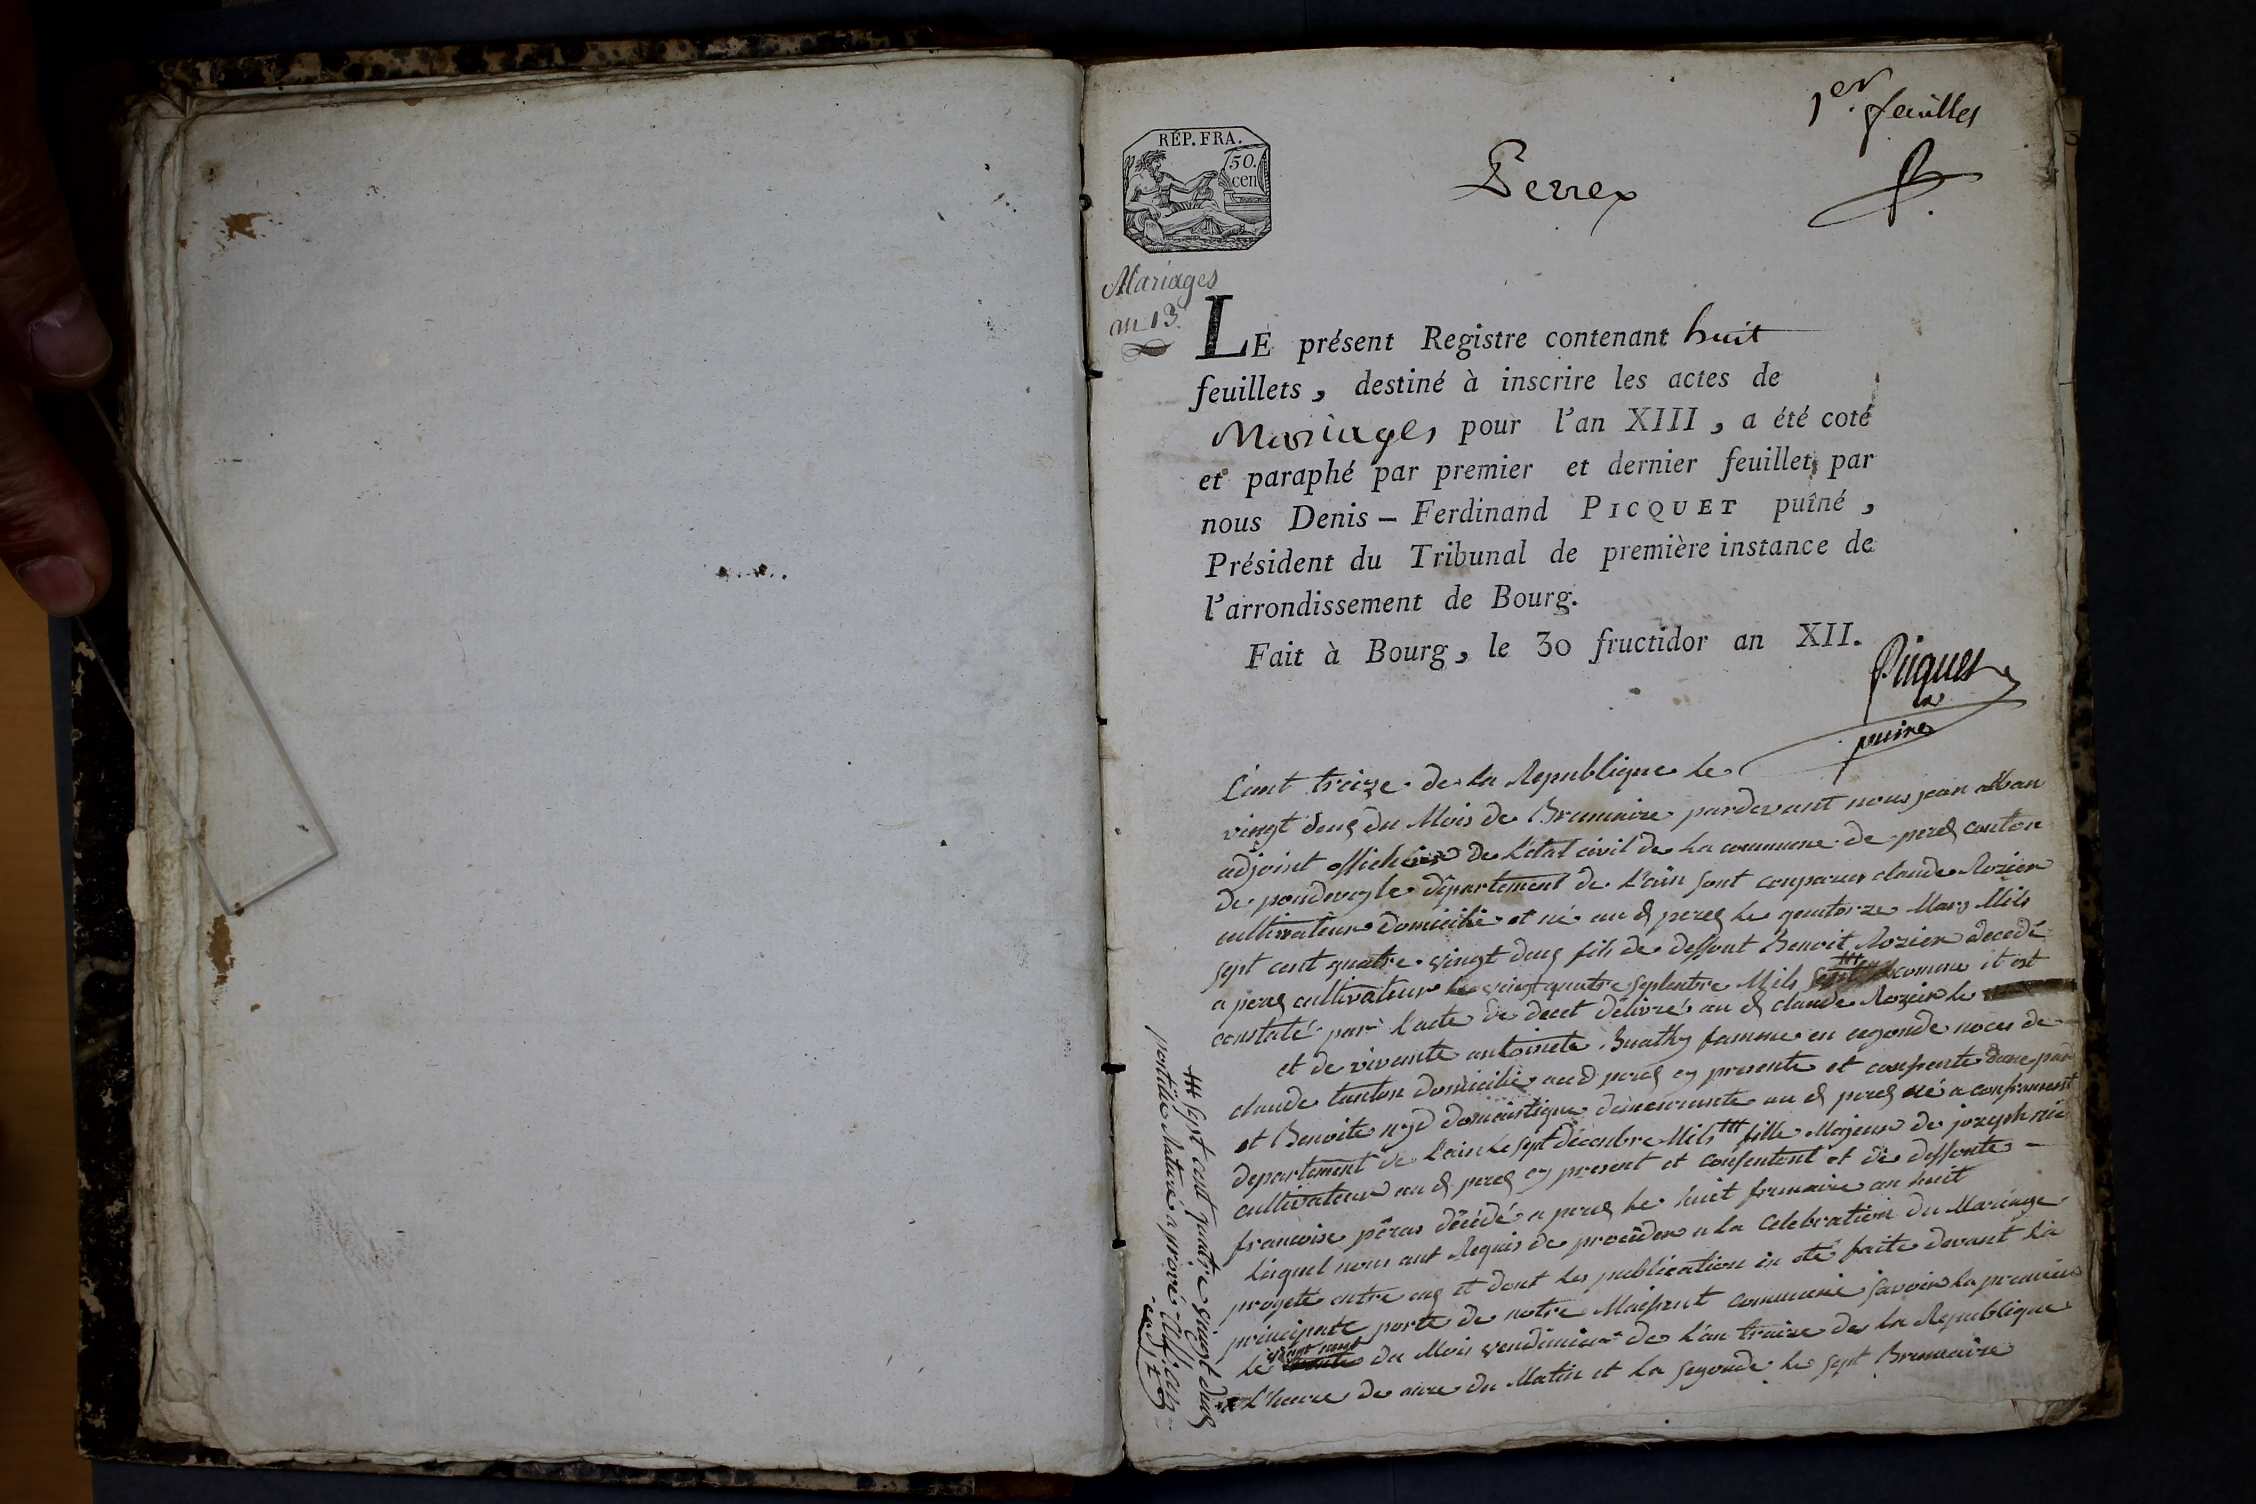 1er feuilles
RÉP. FRA.
50.
cen
Perrex
Mariages
an 13.
LE présent Registre contenant huit
feuillets, destiné à inscrire les actes de
Mariages pour l'an XIII, a été coté
et paraphé par premier et dernier feuillet, par
nous Denis - Ferdinand PICQUET puîné,
Président du Tribunal de première instance de
l'arrondissement de Bourg.
Fait à Bourg, le 30 fructidor an XII.
Picquet
puiné
L'ant treize de la Republique le
vingt deug du Mois de Brumaire pardevant nous jean
adjoint officier de L'état civil de La commune de pereg canton
de pondevegle département de L'ain sont conparus claude Rozier
cultivateur domicilié et né au d pereg le quatorze Mars Mils
sept cent quatre vingt deug fils de deffont Benoit Rozier decedé
a pereg cultivateur le vingt quatre septembre Mils comme it est
constaté par L'acte de decet délivré au d claude Rozier le
et de vivante antoinete Buathy famme en cegonde noces de
claude tanton domicilié au d pereg cy presente et consente dune part
et Benoite nyd domaistique demeurante au d pereg né a confrancont
departement de L'ain Le sept décenbre Mils ttt fille Majeur de joseph nie
cultivateur au d pereg cy present et consentent et de deffonte
francoise péras décédé a pereg le huit frimaire an huit
Lesquel nous ont Requis de procéder a la Celebration du Mariage
progeté entre eug et dont les publication on eté faite devant La
principale porte de notre Maisont commune savoir la premier
le vingt neuf du Mois vendimiair de L'an traize de la Republique
a L'heure de onze du Matin et La segonde le sept Brumaire
ttt sept cent quatre vingt deug